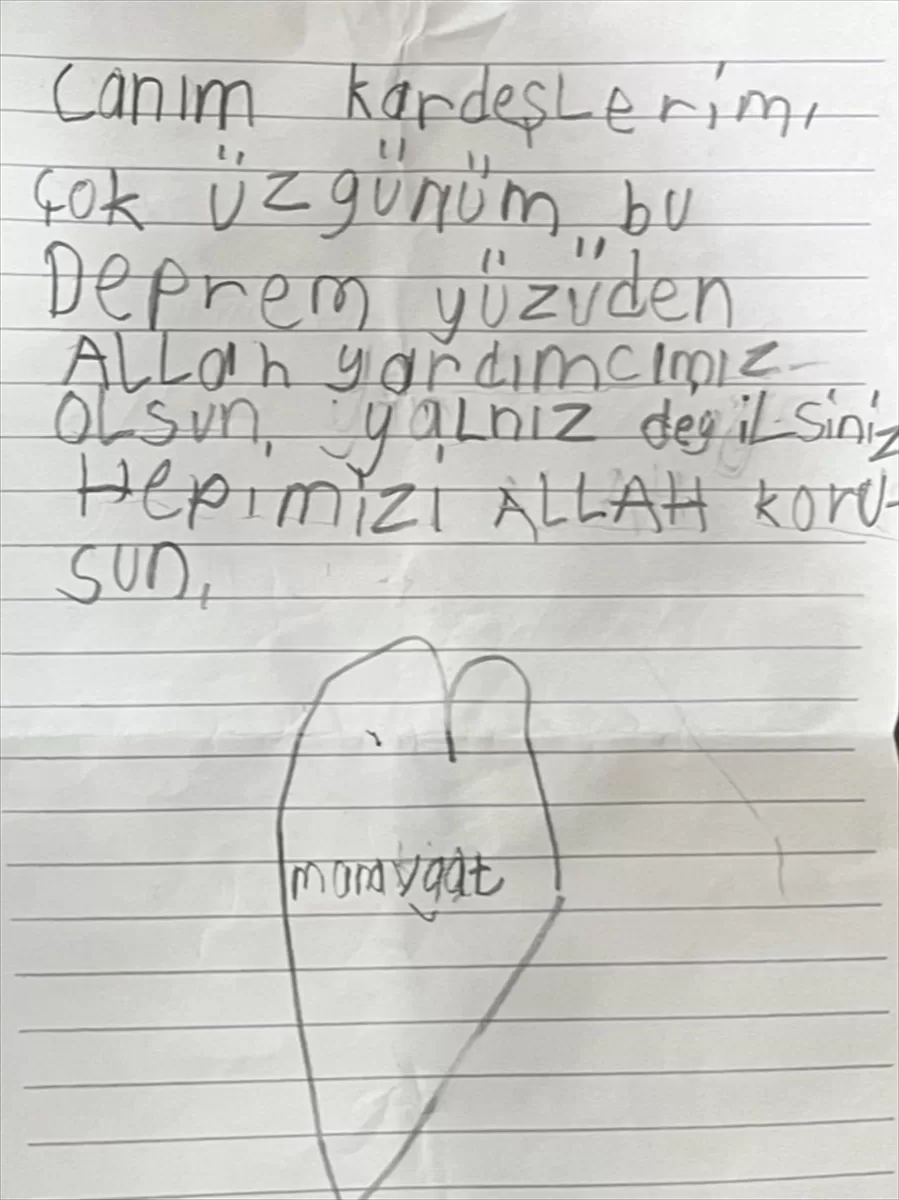 Canım kardeşLerim,
çok üzgünüm bu
Deprem yüzüden
ALLah yardımcımız
OLsun, yaLnız değiLsiniz
Hepimizi ALLAH koru-
sun,